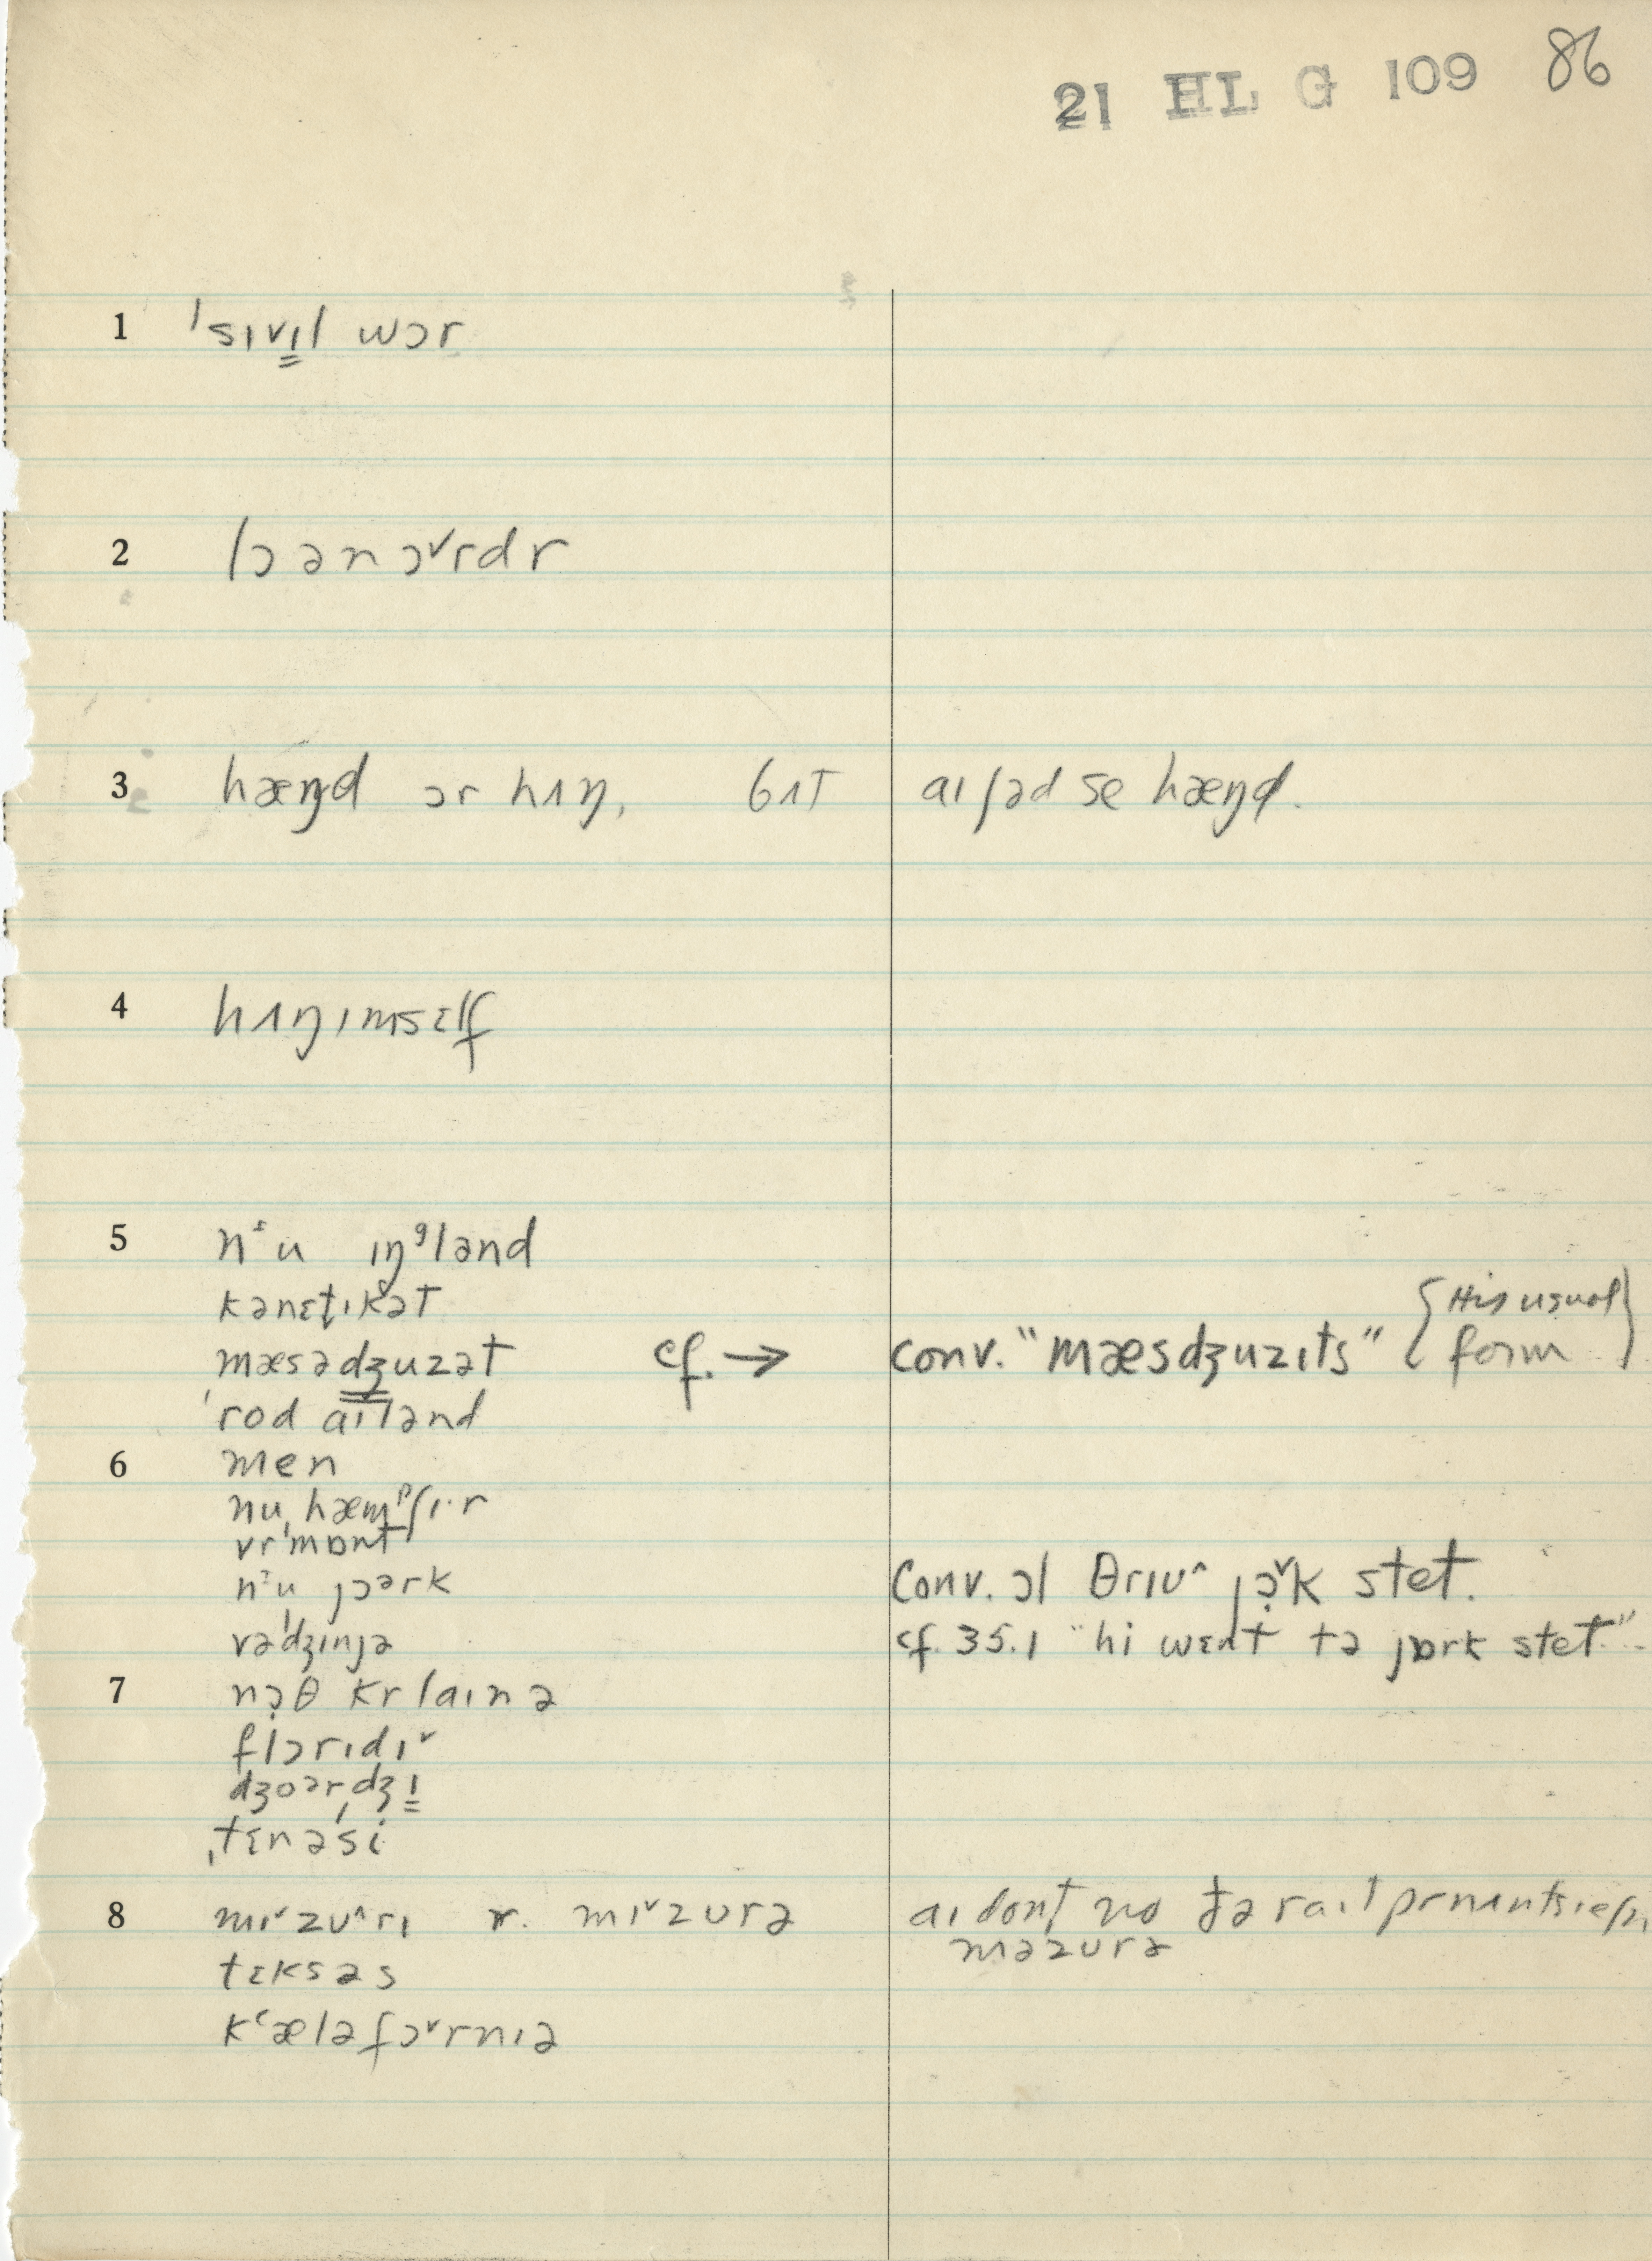 21 HL G 109 86
1 ˈsɪvɪ̳l wɔr
2 lɔ ən ɔ˅rdr
3 hæŋd ɔr hʌŋ, bʌt aɪ ʃəd se hæŋd.
4 hʌŋɪmsɛlf
5 nᶤu ɪŋᶢlənd
kənɛt̬ɪkət
mæsədʒuzət cf. → conv. "mæsdʒuzɪts" {His usual form}
ˈrod aɪlənd
6 men
nu ˌhæmᵖʃɪ·r
vrˈmɒnt
nᶤu jɔərk Conv. ɔl θrɪu^ jɔ̣˅k stet.
vəˈdʒɪnjə cf. 35.1 "hi wɛnt tə jɒrk stet".
7 nɔ̣θ krlaɪnə
flɔrɪdɪ˅
dʒoərdʒɪ̳
ˌtɛnəˈsi
8 mɪ˅zʊ^rɪ r. mɪ˅zʊrə aɪ dont̬ no ðə raɪt prnʌntsɪeʃn,
məzʊrə
tɛksəs
kʻæləfɔ˅rnɪə